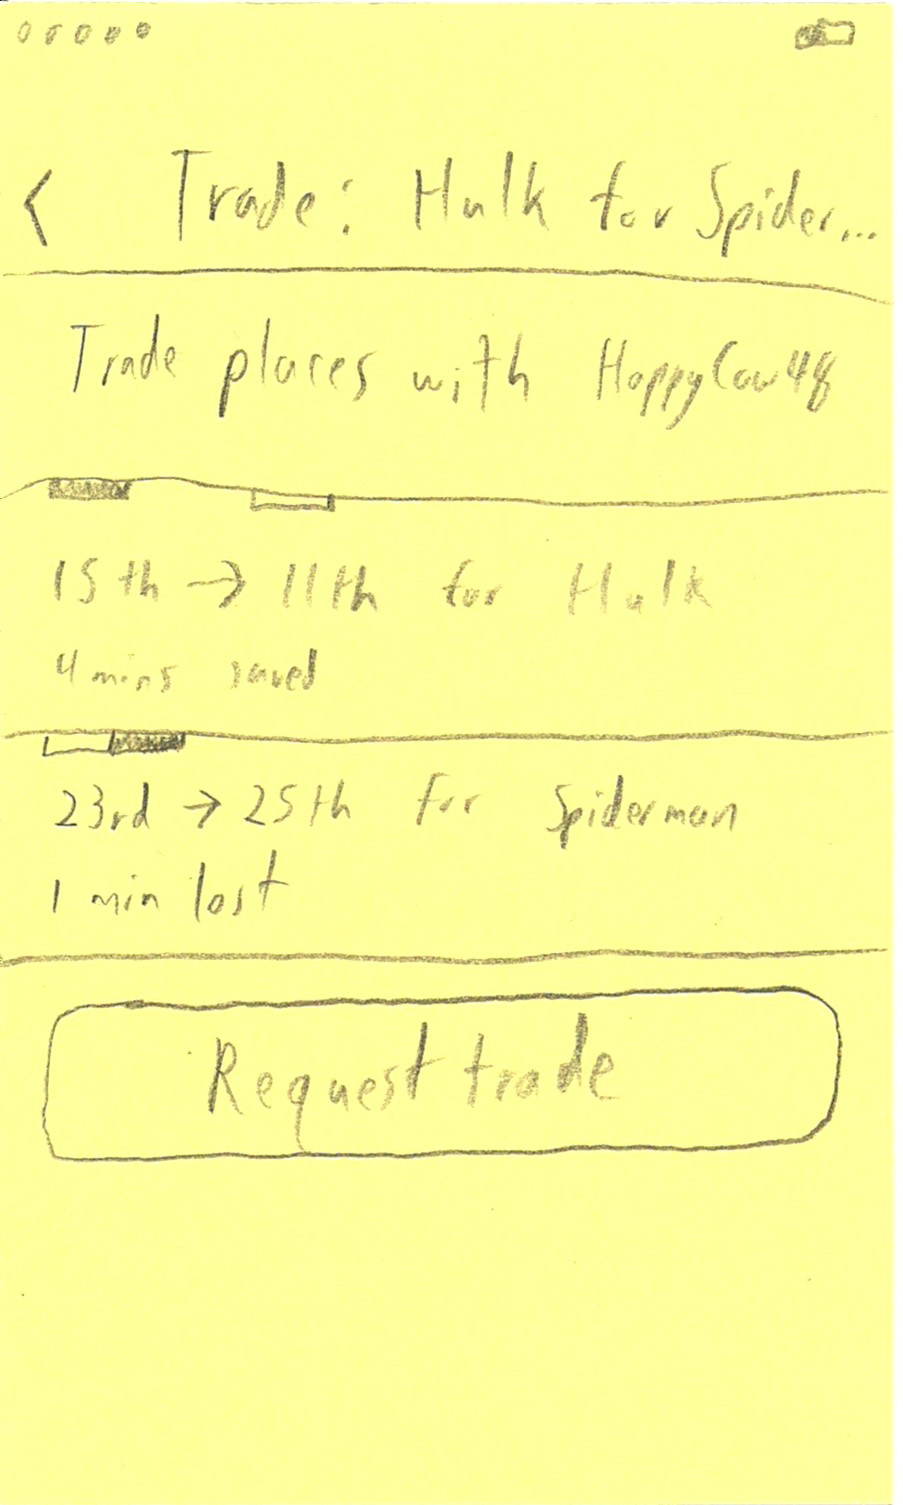 < Trade: Hulk for Spider...
Trade places with HappyCow48
15th → 11th for Hulk
4 mins saved
23rd → 25th for Spiderman
1 min lost
Request trade